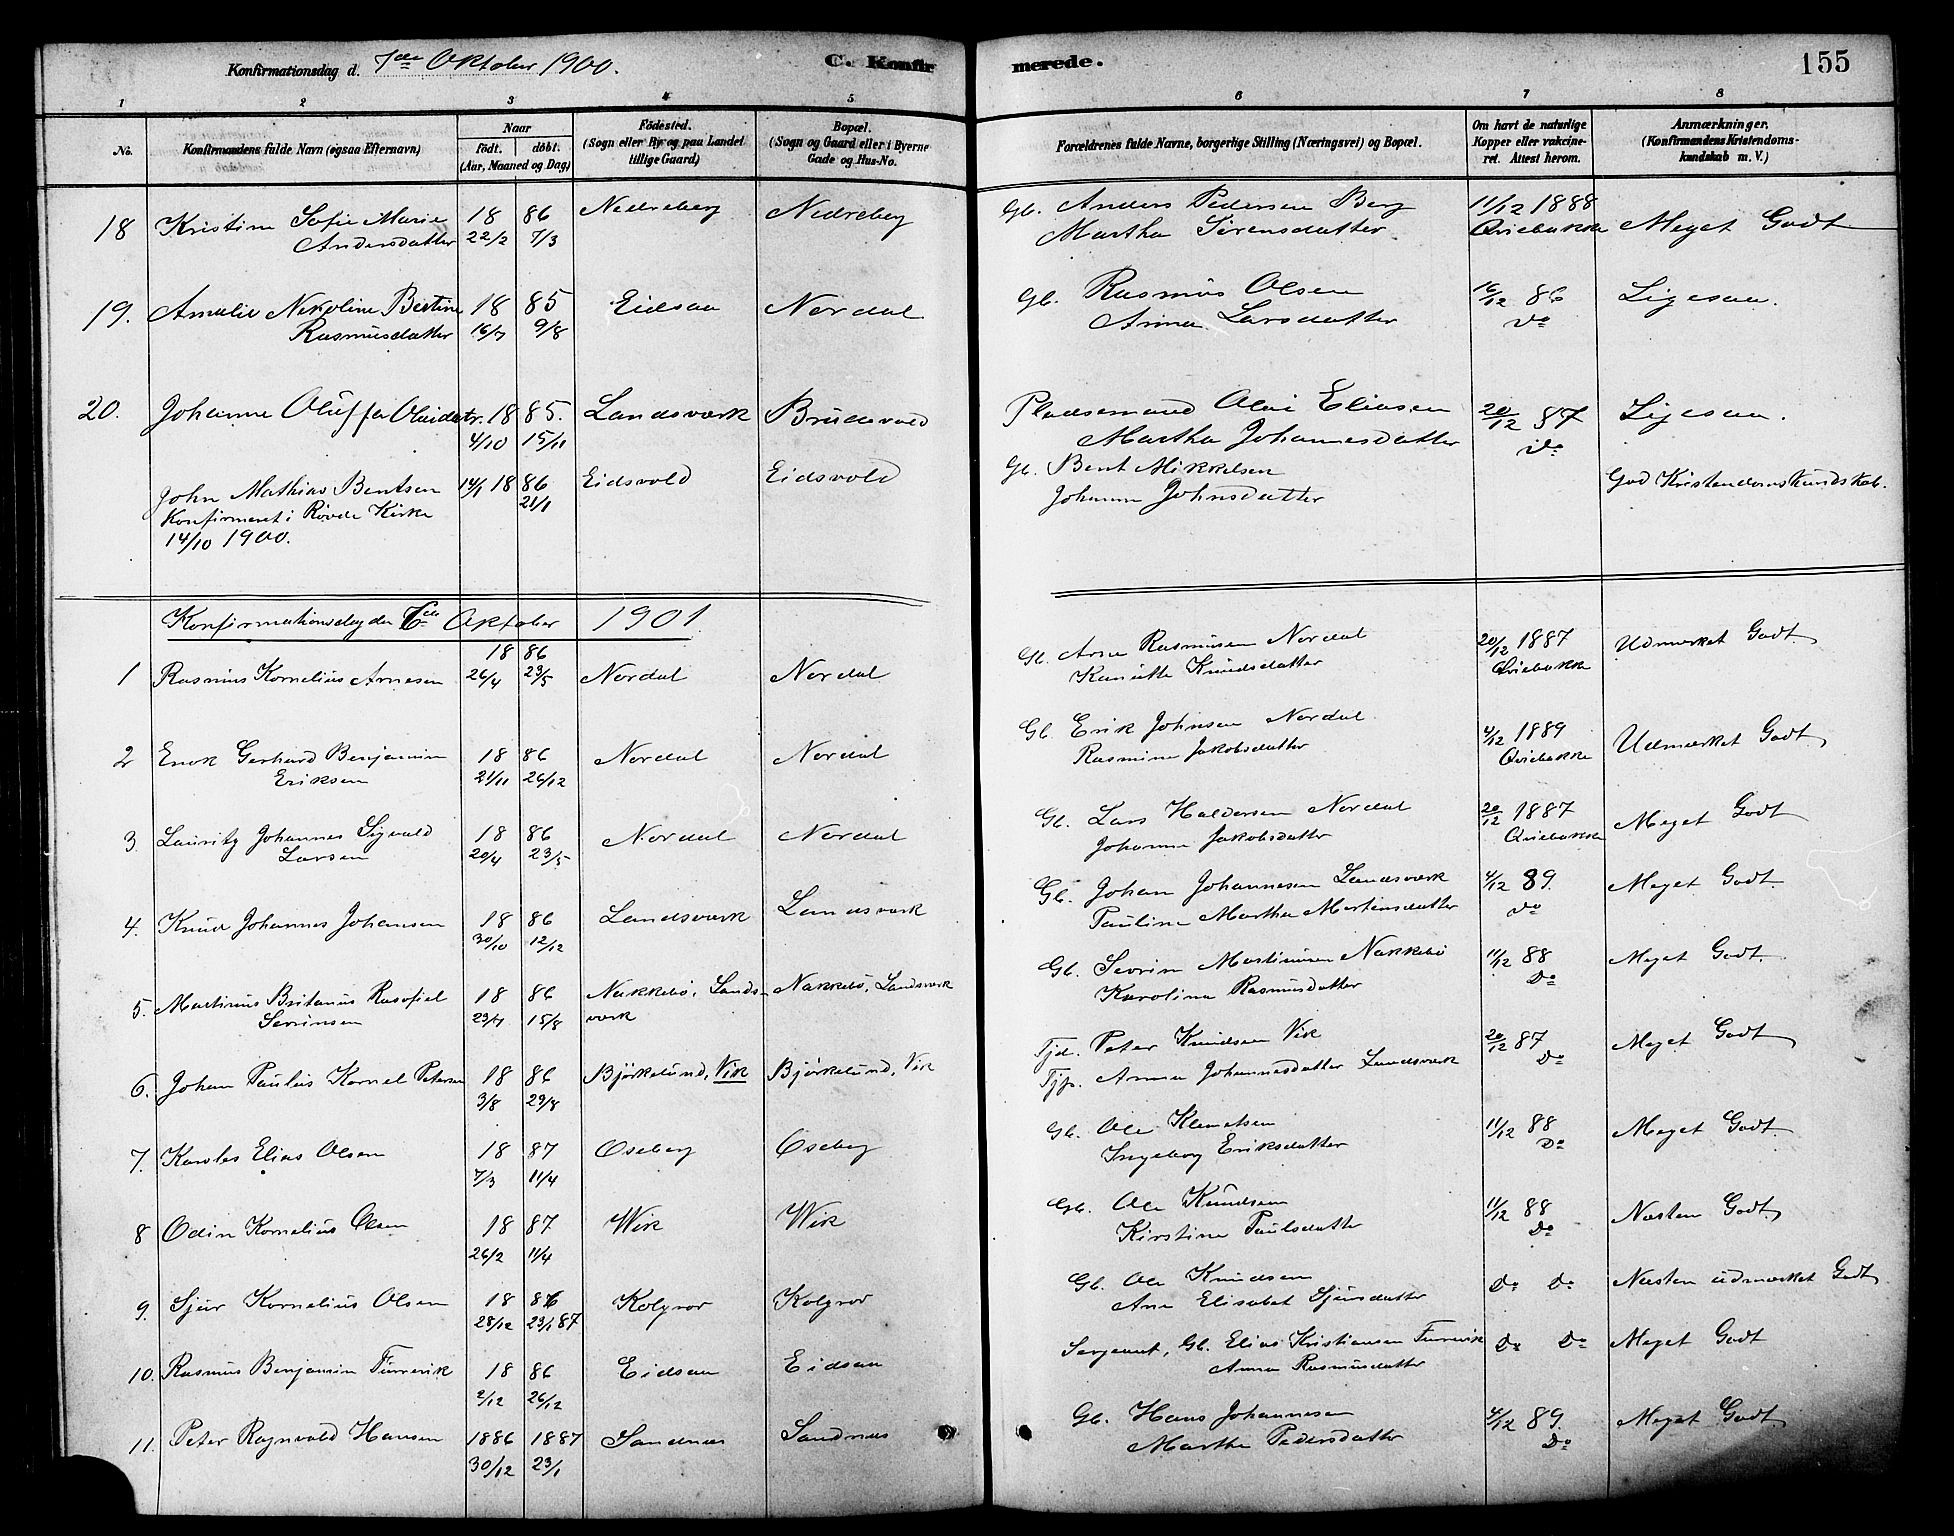 Konfirmationsdag d. 7de Oktober 1900.
C. Konfir
merede.
155
1 2 3 4 5 6 7 8
No.
Konfirmandens fulde Navn (ogsaa Efternavn)
Naar
födt. döbt.
(Aar, Maaned og Dag)
Födested.
(Sogn eller By og paa Landet
tillige Gaard)
Bopæl.
(Sogn og Gaard eller i Byerne
Gade og Hus-No.
Forældrenes fulde Navne, borgerlige Stilling (Næringsvei) og Bopæl.
Om havt de naturlige
Kopper eller vakcine-
ret. Attest herom.
Anmærkninger.
(Konfirmandens Kristendoms-
kundskab m. V.)
18 Kristine Sofie Marie 18 86 Nedreberg Nedreberg Gb. Anders Pedersen Berg 11/12 1888
Andersdatter 22/2 7/3 Martha Sörensdatter Qviebakke Meget Godt
19. Amalie Nikoline Bertine 18 85 Eidsaa Nordal Gb. Rasmus Olsen 16/12 86 Ligesaa.
Rasmusdatter 16/7 9/8 Anna Larsdatter Do
20. Johanne Oluffa Olaidatr. 18 85. Landsværk Brudevold Pladsemand Olai Eliasen 20/12 87 Ligesaa.
4/10 15/11 Martha Johannesdatter Do
John Mathias Bentsen 14/1 18 86 Eidsvold Eidsvold Gb. Bent Mikkelsen God Kristendomskundskab.
Konfirmeret i Røvde Kirke 21/1 Johanne Johnsdatter
14/10 1900.
Konfirmationsdag den 6te Oktober 1901
1 Rasmus Kornelius Arnesen 18 86 Nordal Nordal Gb. Arne Rasmusen Nordal 20/12 1887 Udmærket Godt
26/4 23/5 Kanutte Knudsdatter Qviebakke
2 Enok Gerhard Benjamin 18 86 Nordal Nordal Gb. Erik Johnsen Nordal 4/12 1889 Udmærket Godt
Eriksen 21/11 26/12 Rasmine Jakobsdatter Qviebakke
3. Lauritz Johannes Sigvald 18 86 Nordal Nordal Gb. Lars Haldorsen Nordal 20/12 1887 Meget Godt
Larsen 20/4 23/5 Johanne Jakobsdatter Qviebakke
4. Knud Johannes Johansen 18 86 Landsværk Landsværk Gb. Johan Johannesen Landsværk 4/12 89. Meget Godt
30/10 12/12 Pauline Martha Martinsdatter Do
5. Martinus Britanus Rasofiel 18 86 Nakkebö, Lands- Nakkebö, Landsværk Gb. Sevrin Martinusen Nakkebö 11/12 88 Meget Godt
Sevrinsen 23/7 15/8 værk Karolina Rasmusdatter Do
6. Johan Paulus Kornel Petersen 18 86 Björkelund, Vik Bjørkelund, Vik Tjd. Peter Knudsen Vik 20/12 87 Meget Godt
3/8 29/8 Tjp. Anna Johannesdatter Landsværk Do
7. Karoles Elias Olsen 18 87 Oseberg Oseberg Gb. Ole Klemetsen 11/12 88 Meget Godt
7/3 11/4 Ingeborg Eriksdatter Do
8 Odin Kornelius Olsen 18 87 Wik Wik Gb. Ole Knudsen 11/12 88 Næsten Godt
26/2 11/4 Kirstine Paulsdatter Do
9. Sjur Kornelius Olsen 18 86 Kolgrov Kolgrov Gb. Ole Knudsen Do Do Næsten udmærket Godt
28/12 23/1 87 Ane Elisabet Sjursdatter
10. Rasmus Benjamin Furrevik 18 86 Eidsaa Eidsaa Sergeant, Gb. Elias Kristiansen Furrevik Do Do Meget Godt
2/12 26/12 Anna Rasmusdatter
11. Peter Ragnvald Hansen 1886 1887 Sandnes Sandnes Gb. Hans Johannesen 4/12 89 Meget Godt
30/12 23/1 Marthe Pedersdatter Do